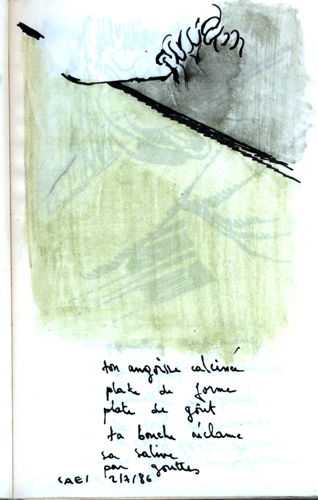 ton angoisse calcinée
plate de forme
plate de goût
ta bouche réclame
sa salive
par gouttes
2/7/86